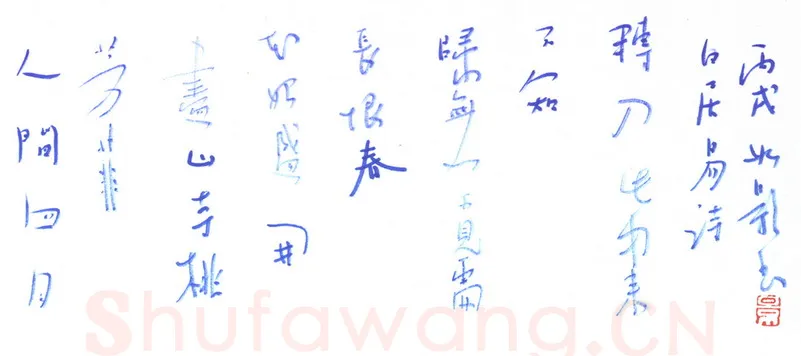 人間四月
芳菲
盡山寺桃
花始盛開
長恨春
歸無覔處
不知
轉入此中來
白居易詩
丙戌如影書
Shufawang.CN